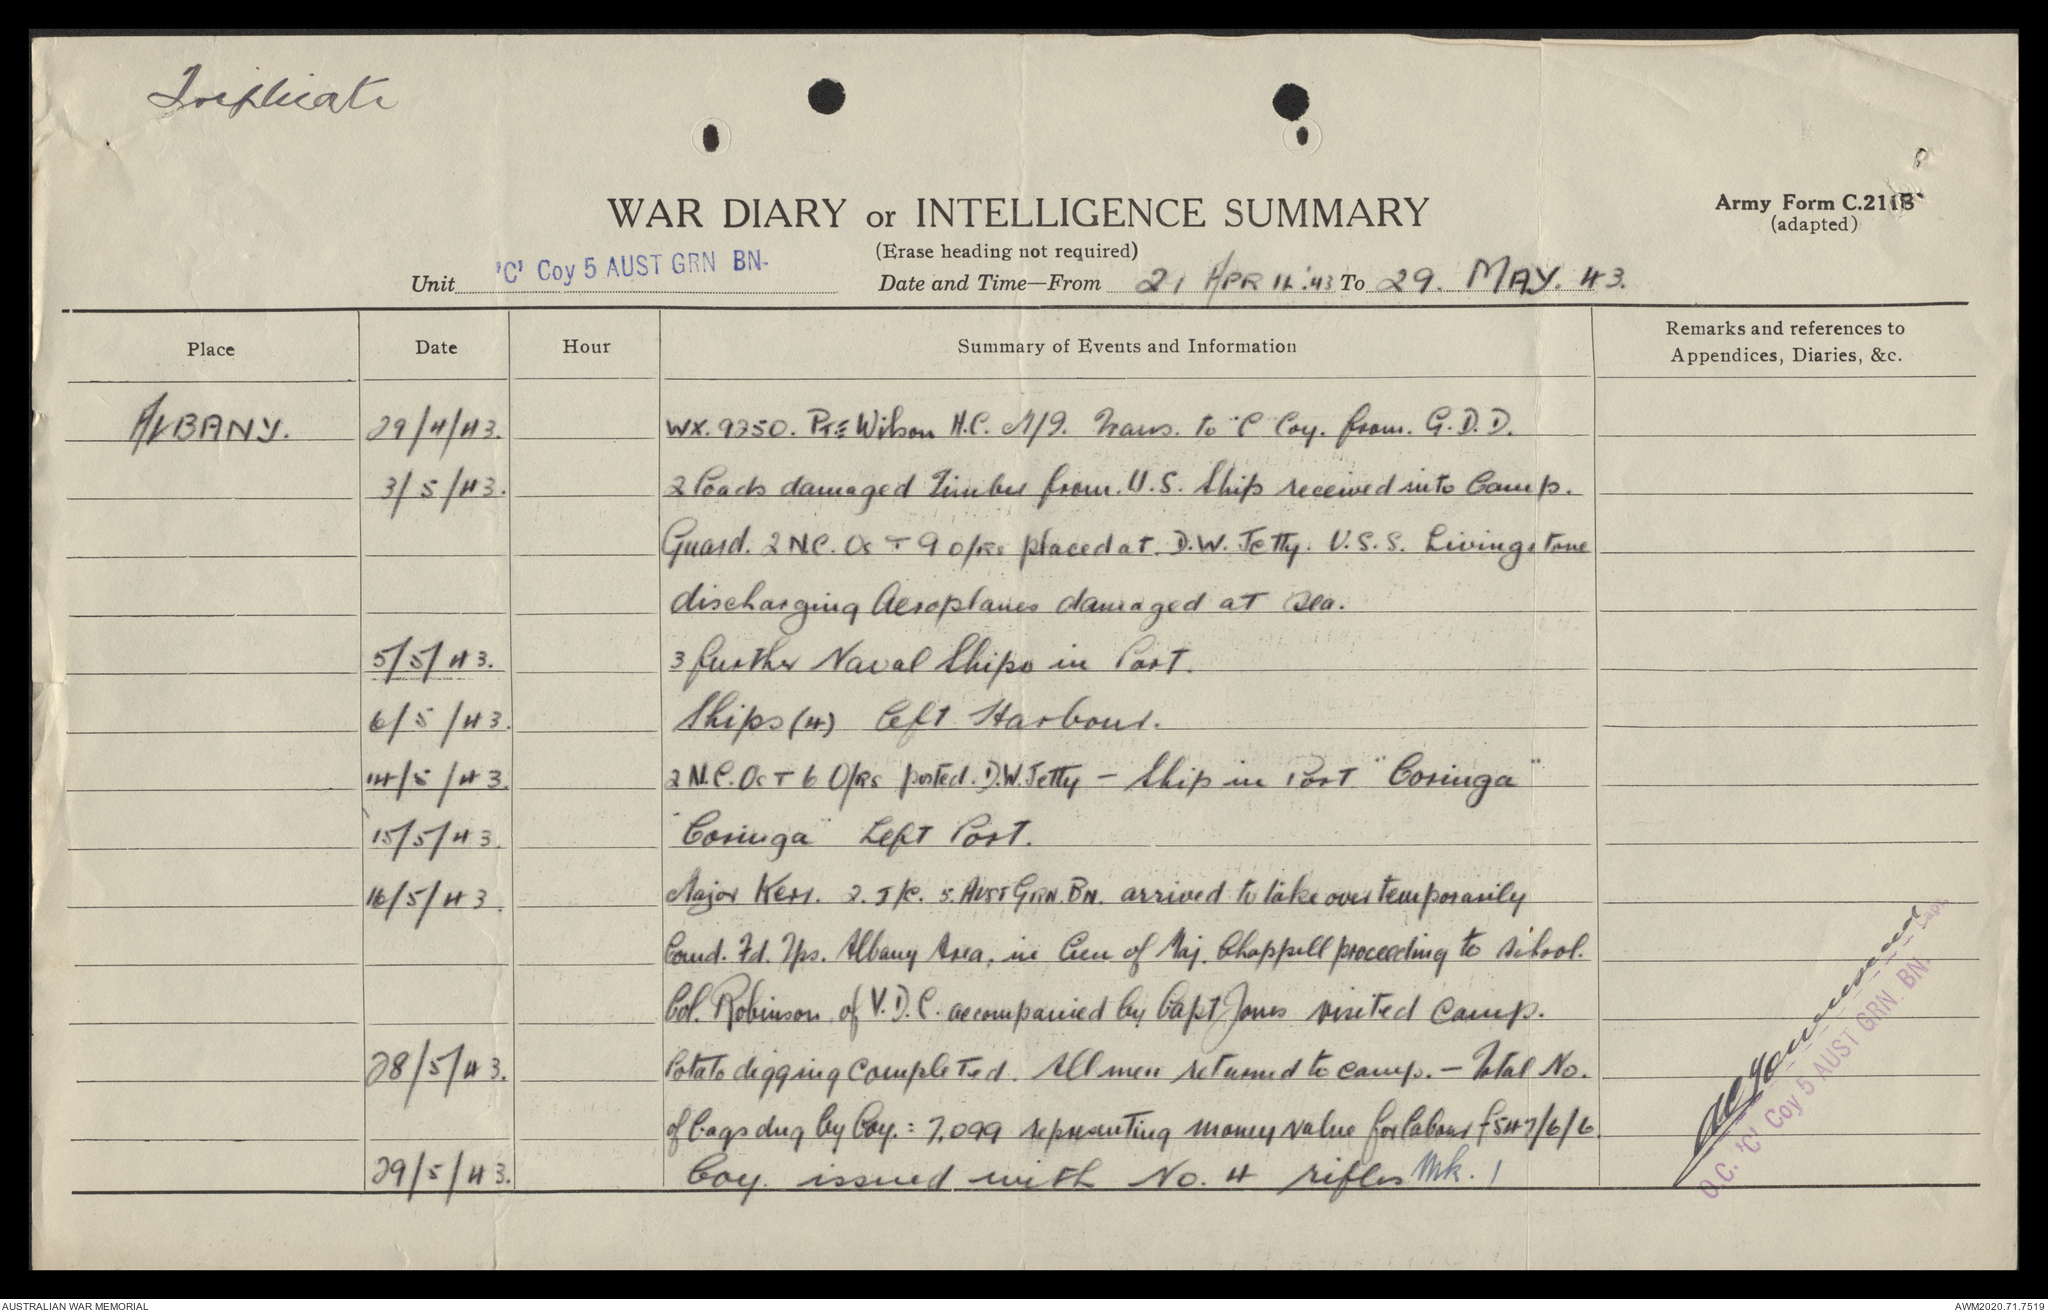 Triplicate
WAR DIARY or INTELLIGENCE SUMMARY
Army Form C.2118
(adapted)
(Erase heading not required)
Unit 'C' Coy 5 AUST GRN BN.
Date and Time—From 21 APRIL '43 To 29. MAY. 43.
Place Date Hour Summary of Events and Information Remarks and references to Appendices, Diaries, &c.
ALBANY. 29/4/43. WX. 9250. PTE Wilson H.C. Trans. to "C" Coy. from. G.D.D.
3/5/43. 2 loads damaged Timber from. U.S. Ship received into Camp.
Guard. 2 N.C.Os + 9 O/Rs placed at. D.W. Jetty. U.S.S. Livingstone
discharging Aeroplanes damaged at sea.
5/5/43. 3 further Naval Ships in Port.
6/5/43. Ships (4) left Harbour.
14/5/43. 2 N.C.Os + 6 O/Rs posted. D.W. Jetty — Ship in Port "Coringa"
15/5/43. "Coringa" Left Port.
16/5/43. Major Kerr. 2. I/C. 5. AUST GRN. BN. arrived to take over temporarily
Comd. Fd. Tps. Albany Area, in lieu of Maj. Chappell proceeding to school.
Col. Robinson of V.D.C. accompanied by Capt Jones visited camp.
28/5/43. Potato digging completed. All men returned to camp. — Total No.
of bags dug by Coy. = 7,099 representing money value for labour £547/6/6.
29/5/43. Coy. issued with No. 4 rifles Mk. 1
Capt.
O.C. 'C' Coy 5 AUST GRN. BN.
AUSTRALIAN WAR MEMORIAL
AWM2020.71.7519